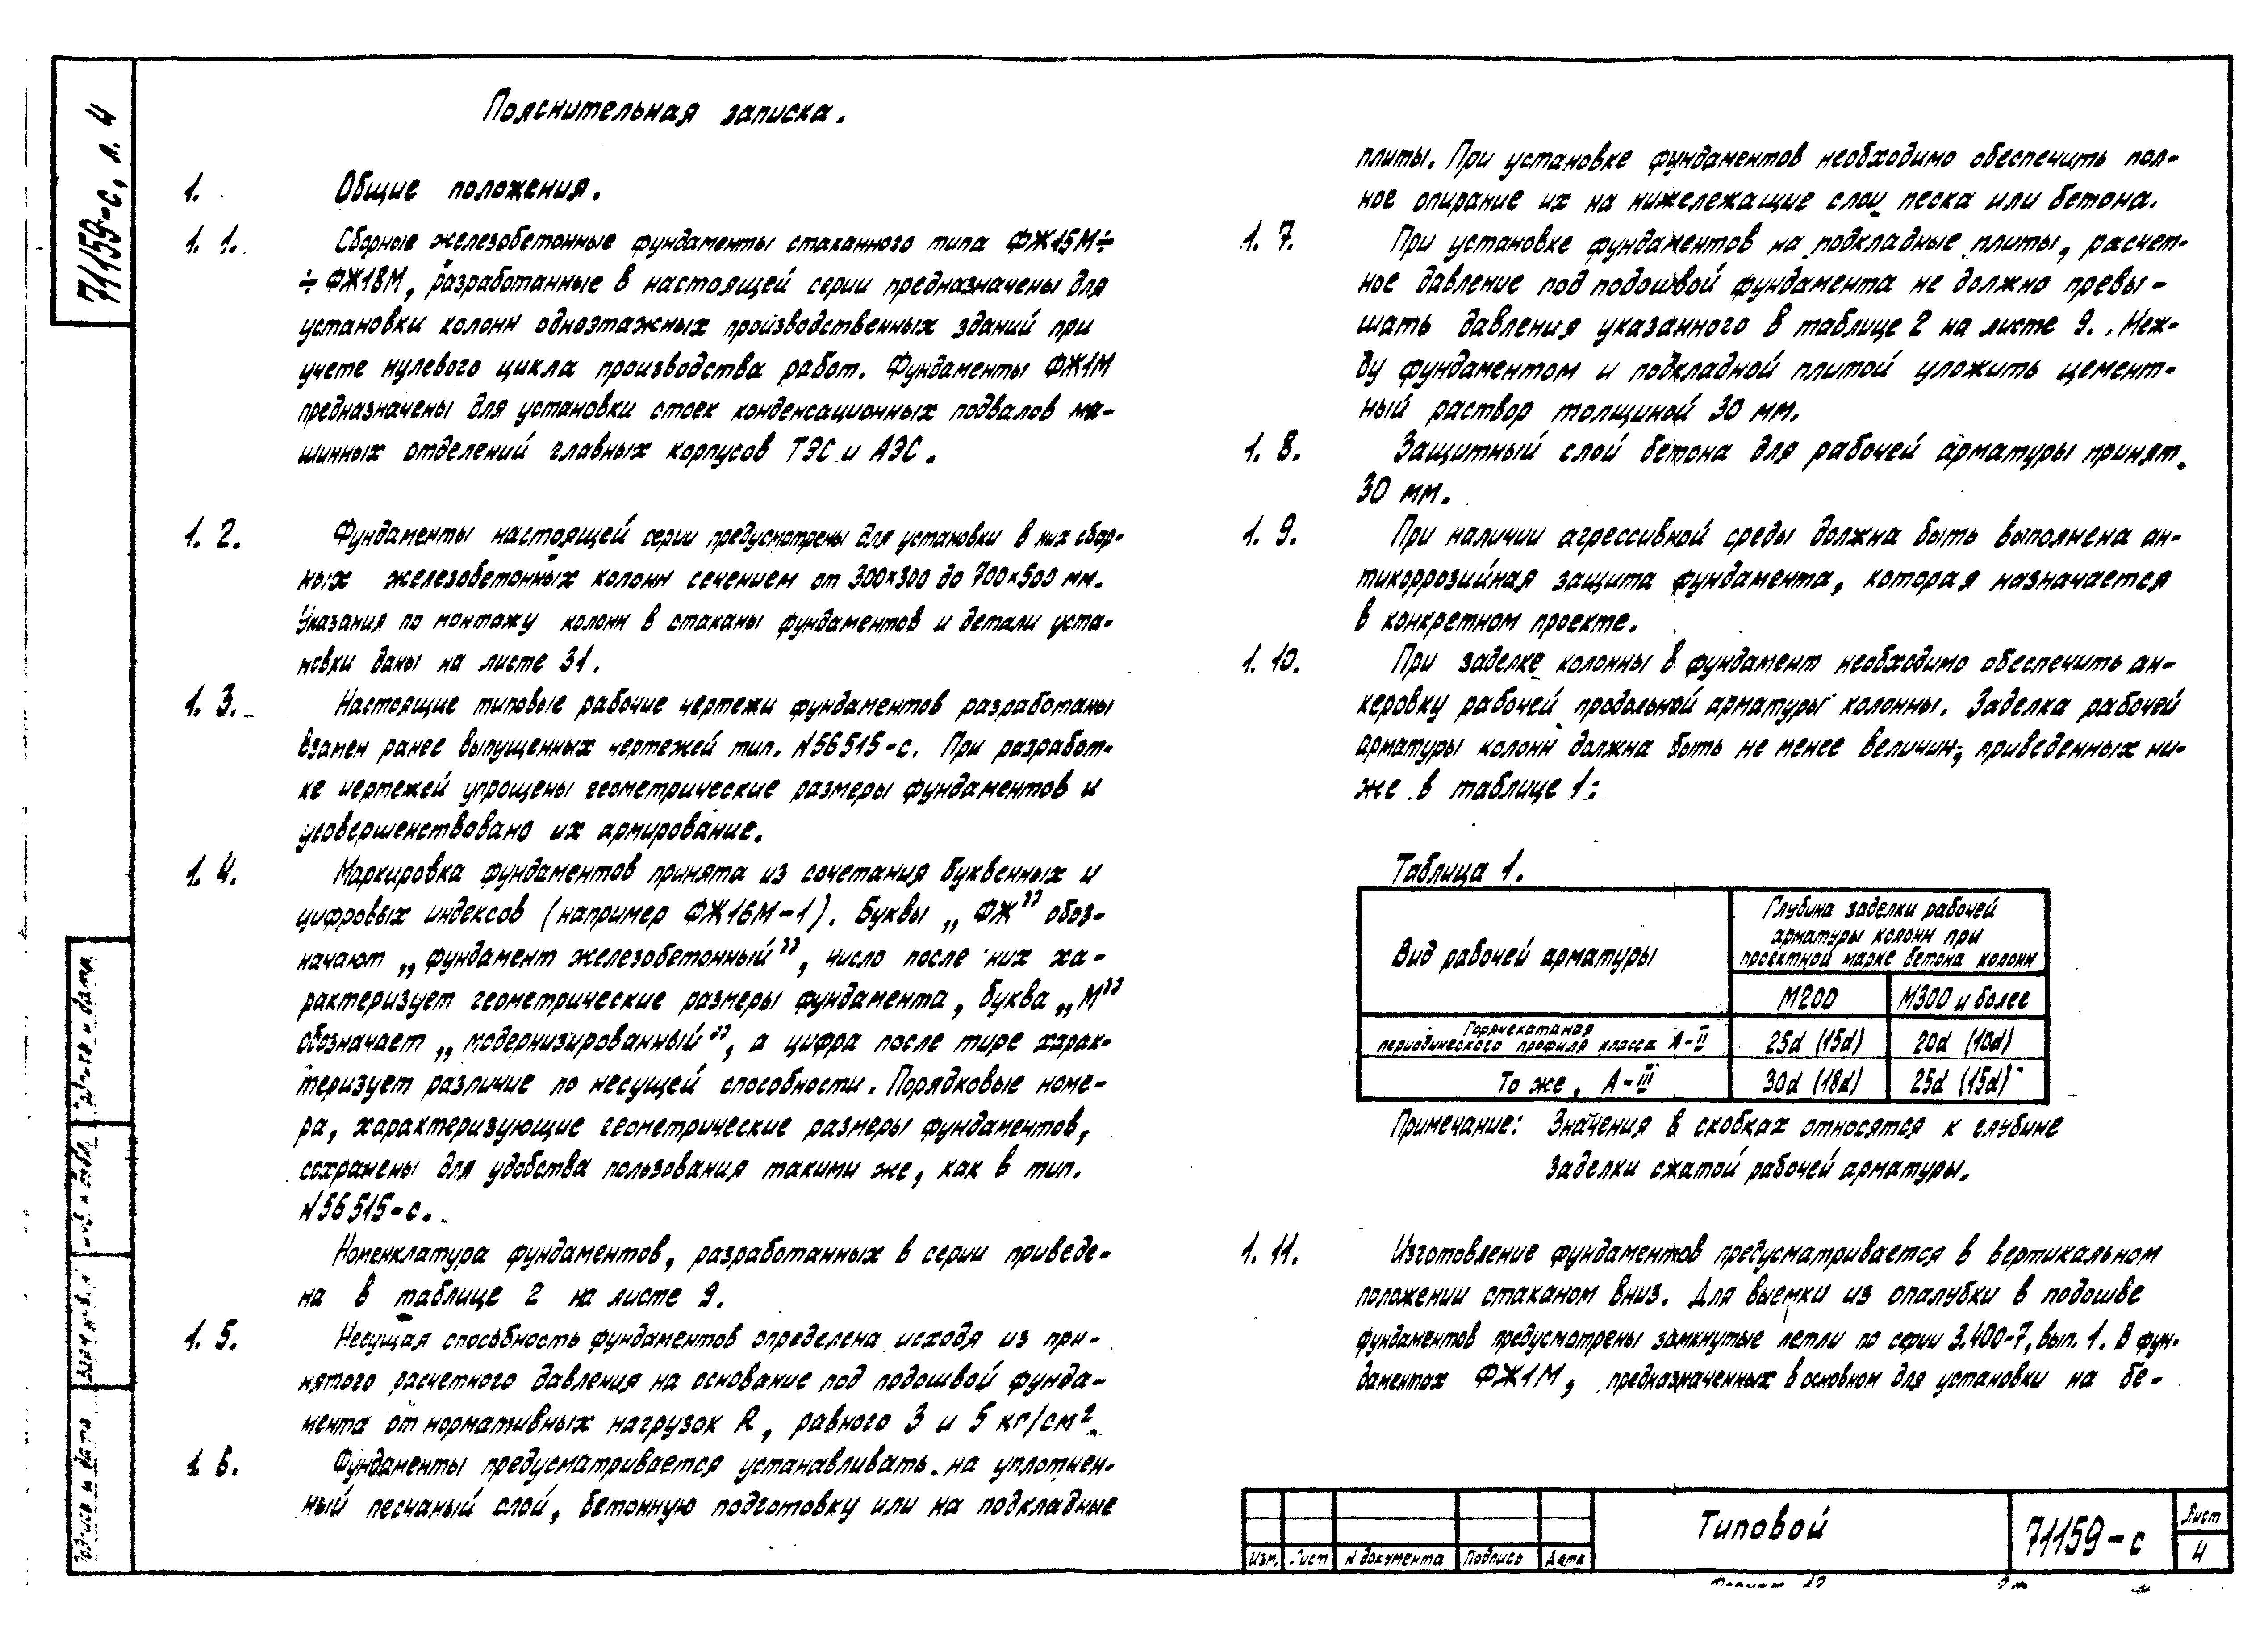 71159-с, л. 4
Пояснительная записка.
1. Общие положения.
1. 1. Сборные железобетонные фундаменты стаканного типа ФЖ15М÷
÷ ФЖ18М, разработанные в настоящей серии предназначены для
установки колонн одноэтажных производственных зданий при
учете нулевого цикла производства работ. Фундаменты ФЖ1М
предназначены для установки стоек конденсационных подвалов ма-
шинных отделений главных корпусов ТЭС и АЭС.
1. 2. Фундаменты настоящей серии предусмотрены для установки в них сбор-
ных железобетонных колонн сечением от 300×300 до 700×500 мм.
Указания по монтажу колонн в стаканы фундаментов и детали уста-
новки даны на листе 31.
1. 3. Настоящие типовые рабочие чертежи фундаментов разработаны
взамен ранее выпущенных чертежей тип. N56515-с. При разработ-
ке чертежей упрощены геометрические размеры фундаментов и
усовершенствовано их армирование.
1. 4. Маркировка фундаментов принята из сочетания буквенных и
цифровых индексов (например ФЖ16М-1). Буквы „ФЖ” обоз-
начают „фундамент железобетонный”, число после них ха-
рактеризует геометрические размеры фундамента, буква „М”
обозначает „модернизированный”, а цифра после тире харак-
теризует различие по несущей способности. Порядковые номе-
ра, характеризующие геометрические размеры фундаментов,
сохранены для удобства пользования такими же, как в тип.
N56515-с.
Номенклатура фундаментов, разработанных в серии приведе-
на в таблице 2 на листе 9.
1. 5. Несущая способность фундаментов определена исходя из при-
нятого расчетного давления на основание под подошвой фунда-
мента от нормативных нагрузок R, равного 3 и 5 кг/см².
1. 6. Фундаменты предусматривается устанавливать на уплотнен-
ный песчаный слой, бетонную подготовку или на подкладные
плиты. При установке фундаментов необходимо обеспечить пол-
ное опирание их на нижележащие слои песка или бетона.
1. 7. При установке фундаментов на подкладные плиты, расчет-
ное давление под подошвой фундамента не должно превы-
шать давления указанного в таблице 2 на листе 9. Меж-
ду фундаментом и подкладной плитой уложить цемент-
ный раствор толщиной 30 мм.
1. 8. Защитный слой бетона для рабочей арматуры принят
30 мм.
1. 9. При наличии агрессивной среды должна быть выполнена ан-
тикоррозийная защита фундамента, которая назначается
в конкретном проекте.
1. 10. При заделке колонны в фундамент необходимо обеспечить ан-
керовку рабочей продольной арматуры колонны. Заделка рабочей
арматуры колонн должна быть не менее величин, приведенных ни-
же в таблице 1:
Таблица 1.
Вид рабочей арматуры
Глубина заделки рабочей
арматуры колонн при
проектной марке бетона колонн
М200 М300 и более
Горячекатаная
периодического профиля класса А-II 25d (15d) 20d (10d)
То же, А-III 30d (18d) 25d (15d)
Примечание: Значения в скобках относятся к глубине
заделки сжатой рабочей арматуры.
1. 11. Изготовление фундаментов предусматривается в вертикальном
положении стаканом вниз. Для выемки из опалубки в подошве
фундаментов предусмотрены замкнутые петли по серии 3.400-7, вып. 1. В фун-
даментах ФЖ1М, предназначенных в основном для установки на бе-
Изм. Лист N документа Подпись Дата
Типовой
71159-с
Лист
4
Подпись и дата